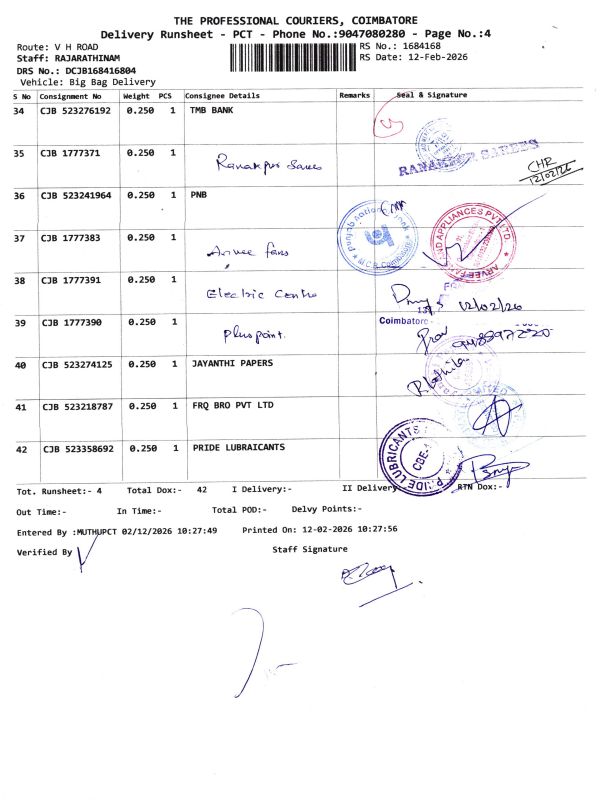 THE PROFESSIONAL COURIERS, COIMBATORE
Delivery Runsheet - PCT - Phone No.:9047080280 - Page No.:4
Route: V H ROAD RS No.: 1684168
Staff: RAJARATHINAM RS Date: 12-Feb-2026
DRS No.: DCJB168416804
Vehicle: Big Bag Delivery
S No Consignment No Weight PCS Consignee Details Remarks Seal & Signature
34 CJB 523276192 0.250 1 TMB BANK
35 CJB 1777371 0.250 1 Ranakpur Sarees RANAKPUR SAREES
CHR
12/02/26
36 CJB 523241964 0.250 1 PNB
37 CJB 1777383 0.250 1 Arvee fans
38 CJB 1777391 0.250 1 Electric Centre 12/02/26
39 CJB 1777390 0.250 1 pluspoint. Coimbatore-
40 CJB 523274125 0.250 1 JAYANTHI PAPERS
41 CJB 523218787 0.250 1 FRQ BRO PVT LTD
42 CJB 523358692 0.250 1 PRIDE LUBRAICANTS PRIDE LUBRICANTS CBE-
Tot. Runsheet:- 4 Total Dox:- 42 I Delivery:- II Delivery:- RTN Dox:-
Out Time:- In Time:- Total POD:- Delvy Points:-
Entered By :MUTHUPCT 02/12/2026 10:27:49 Printed On: 12-02-2026 10:27:56
Verified By Staff Signature